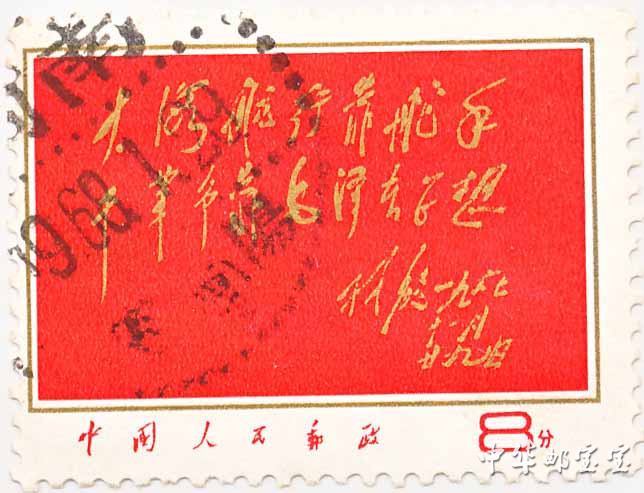 南
1968.1.29
大海航行靠舵手
干革命靠毛泽东思想
林彪一九六七
十一月
廿九日
中国人民邮政 8分
中华邮宝宝